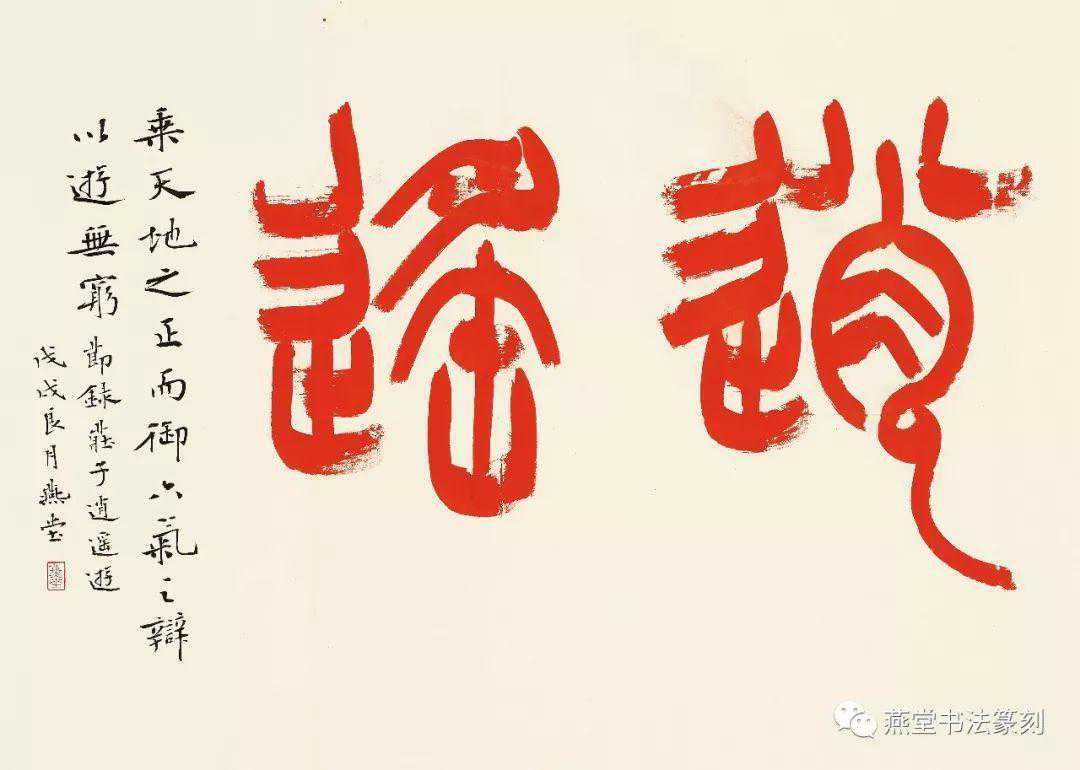 逍遥
乘天地之正而御六氣之辯
以遊無窮 節錄莊子逍遥遊
戊戌良月燕堂
燕堂书法篆刻